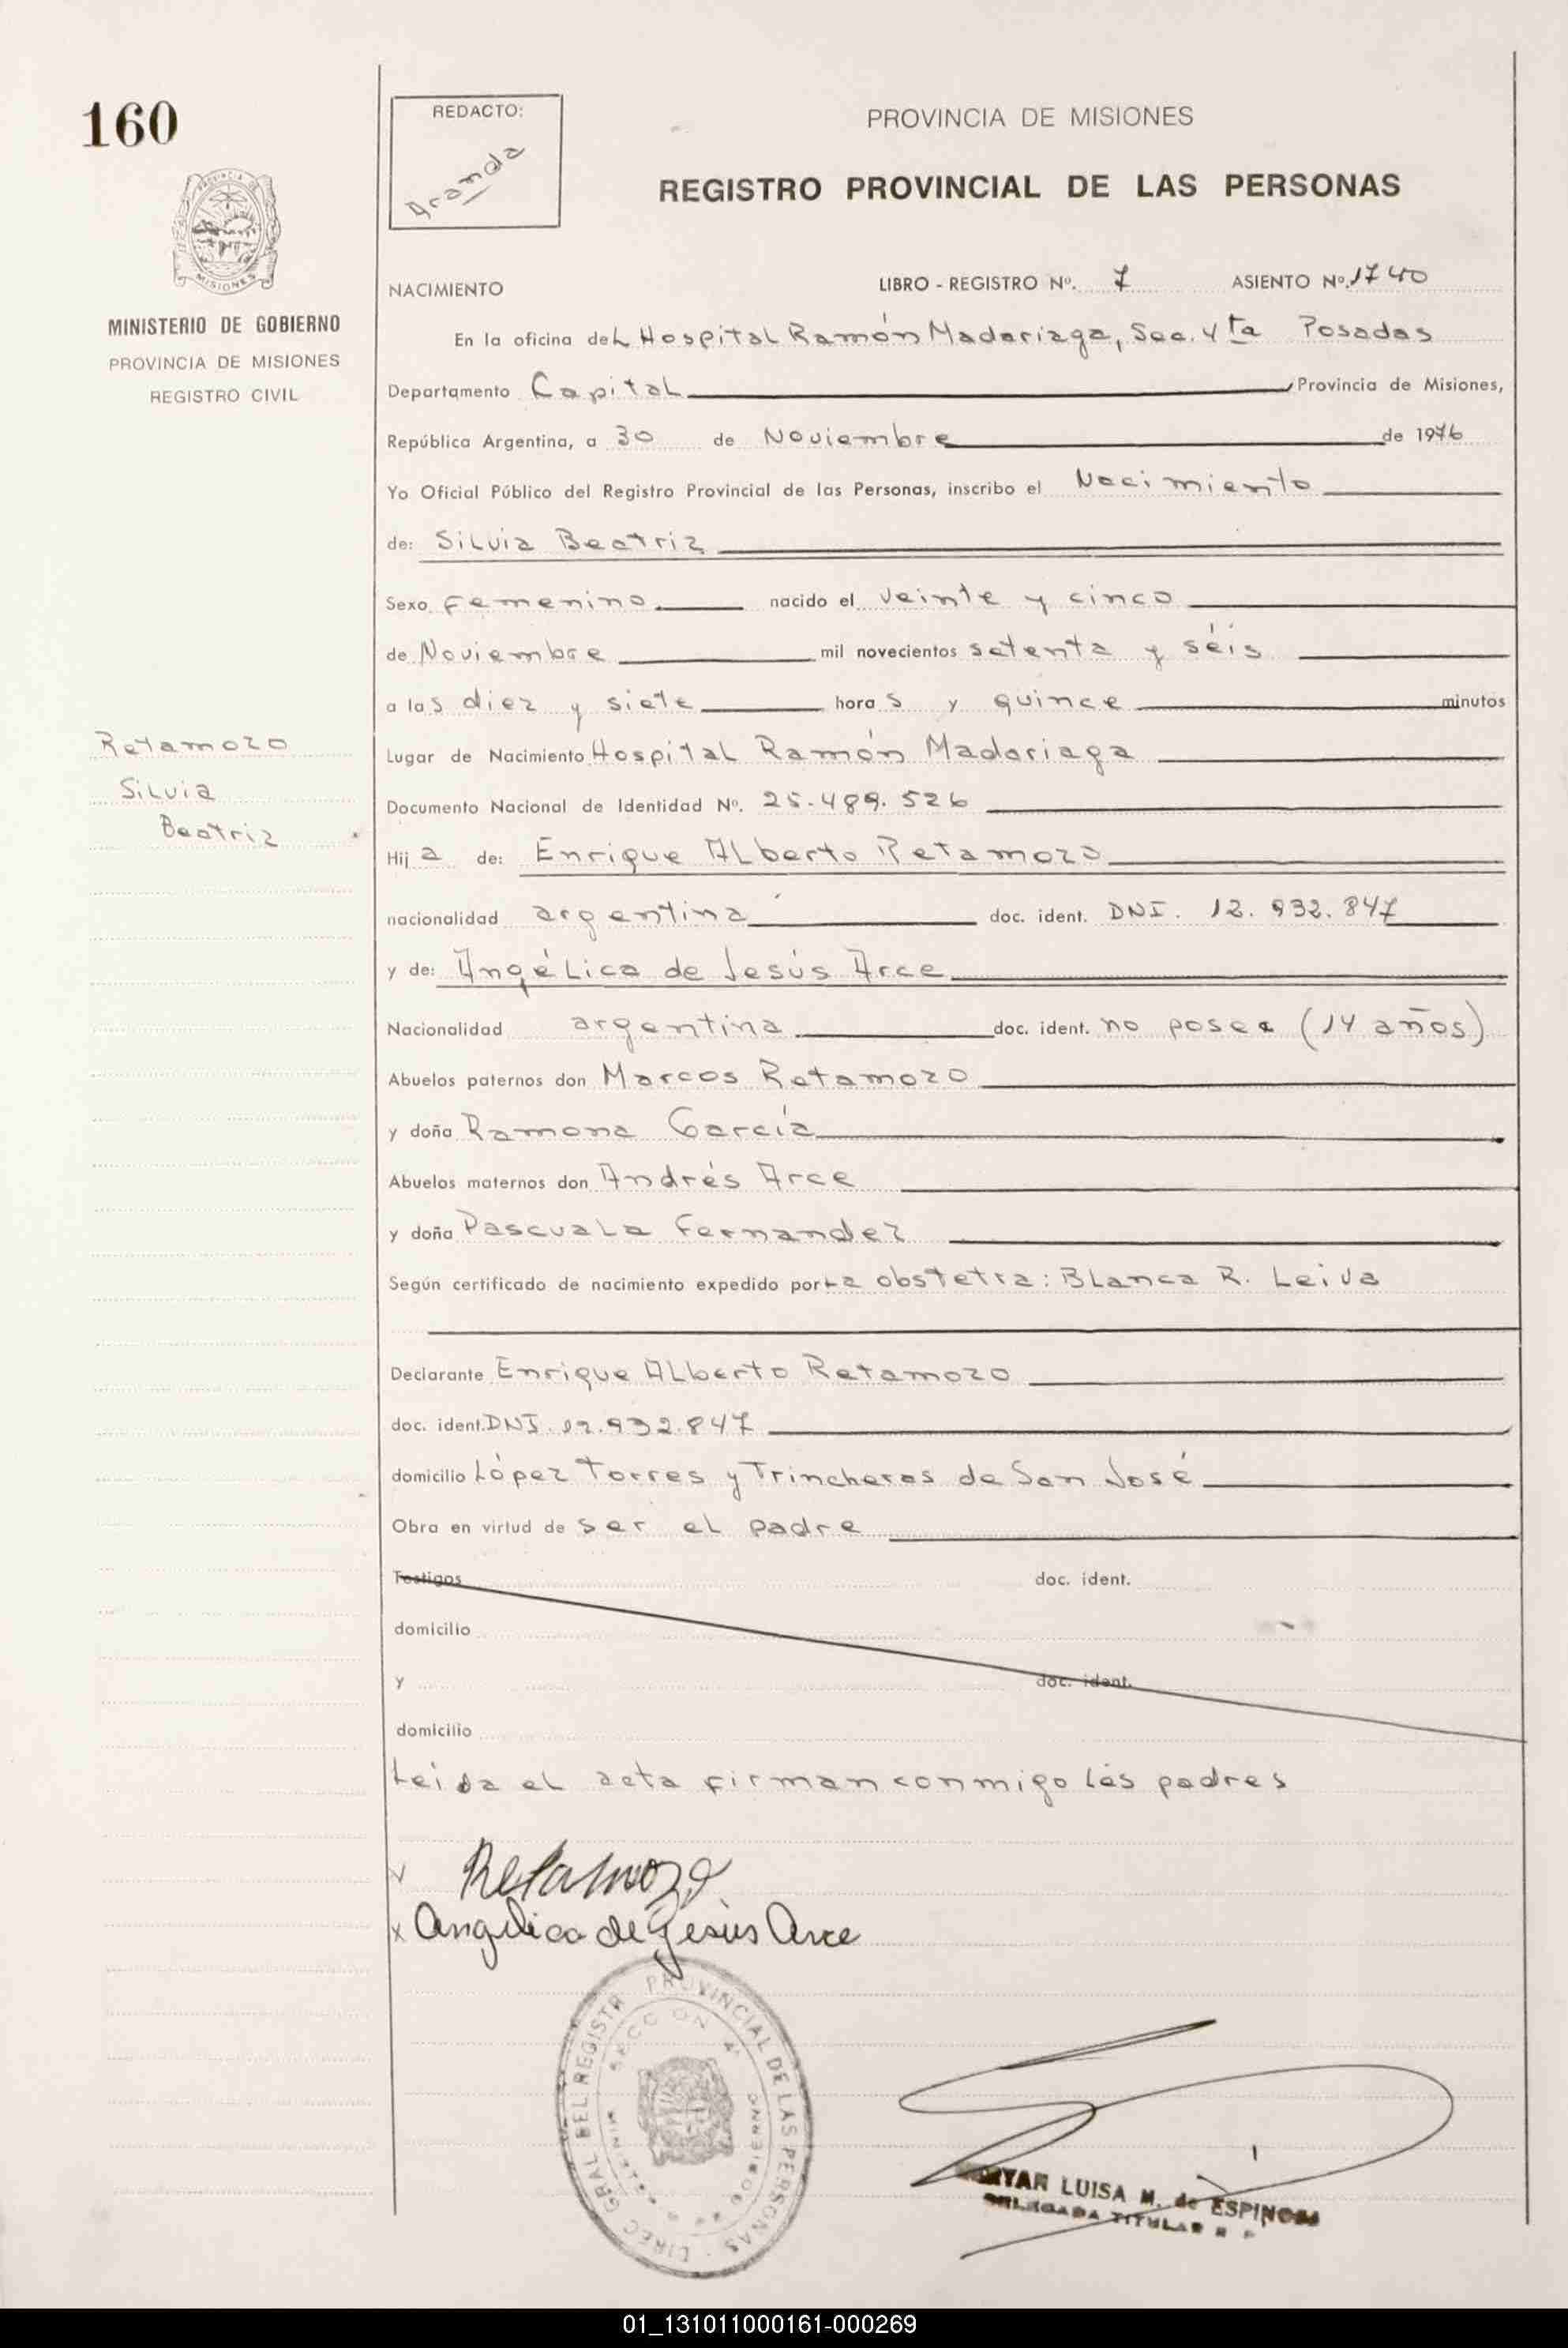 160
REDACTO:
Aranda
PROVINCIA DE MISIONES
REGISTRO PROVINCIAL DE LAS PERSONAS
MISIONES
MINISTERIO DE GOBIERNO
PROVINCIA DE MISIONES
REGISTRO CIVIL
NACIMIENTO LIBRO - REGISTRO Nº. 7 ASIENTO Nº. 1740
En la oficina del Hospital Ramón Madariaga, Sec. 4ta Posadas
Departamento Capital, Provincia de Misiones,
República Argentina, a 30 de Noviembre de 1976
Yo Oficial Público del Registro Provincial de las Personas, inscribo el Nacimiento
de: Silvia Beatriz
Sexo femenino nacido el veinte y cinco
de Noviembre mil novecientos setenta y séis
a las diez y siete horas y quince minutos
Retamozo
Silvia
Beatriz
Lugar de Nacimiento Hospital Ramón Madariaga
Documento Nacional de Identidad Nº. 25.489.526
Hija de: Enrique Alberto Retamozo
nacionalidad argentina doc. ident. DNI. 12.932.847
y de: Angélica de Jesús Arce
Nacionalidad argentina doc. ident. no posee (14 años)
Abuelos paternos don Marcos Retamozo
y doña Ramona García
Abuelos maternos don Andrés Arce
y doña Pascuala Fernandez
Según certificado de nacimiento expedido por La obstetra: Blanca R. Leiva
Declarante Enrique Alberto Retamozo
doc. ident. DNI. 12.932.847
domicilio López Torres y Trincheras de San José
Obra en virtud de ser el padre
Testigos doc. ident.
domicilio
y doc. ident.
domicilio
Leida el acta firman conmigo los padres
Retamozo
x Angelica de Jesús Arce
DIREC GRAL DEL REGISTR PROVINCIAL DE LAS PERSONAS
SECCION 4ª
GOBIERNO
LUISA M. de ESPINOSA
DELEGADA TITULAR R P
01_131011000161-000269